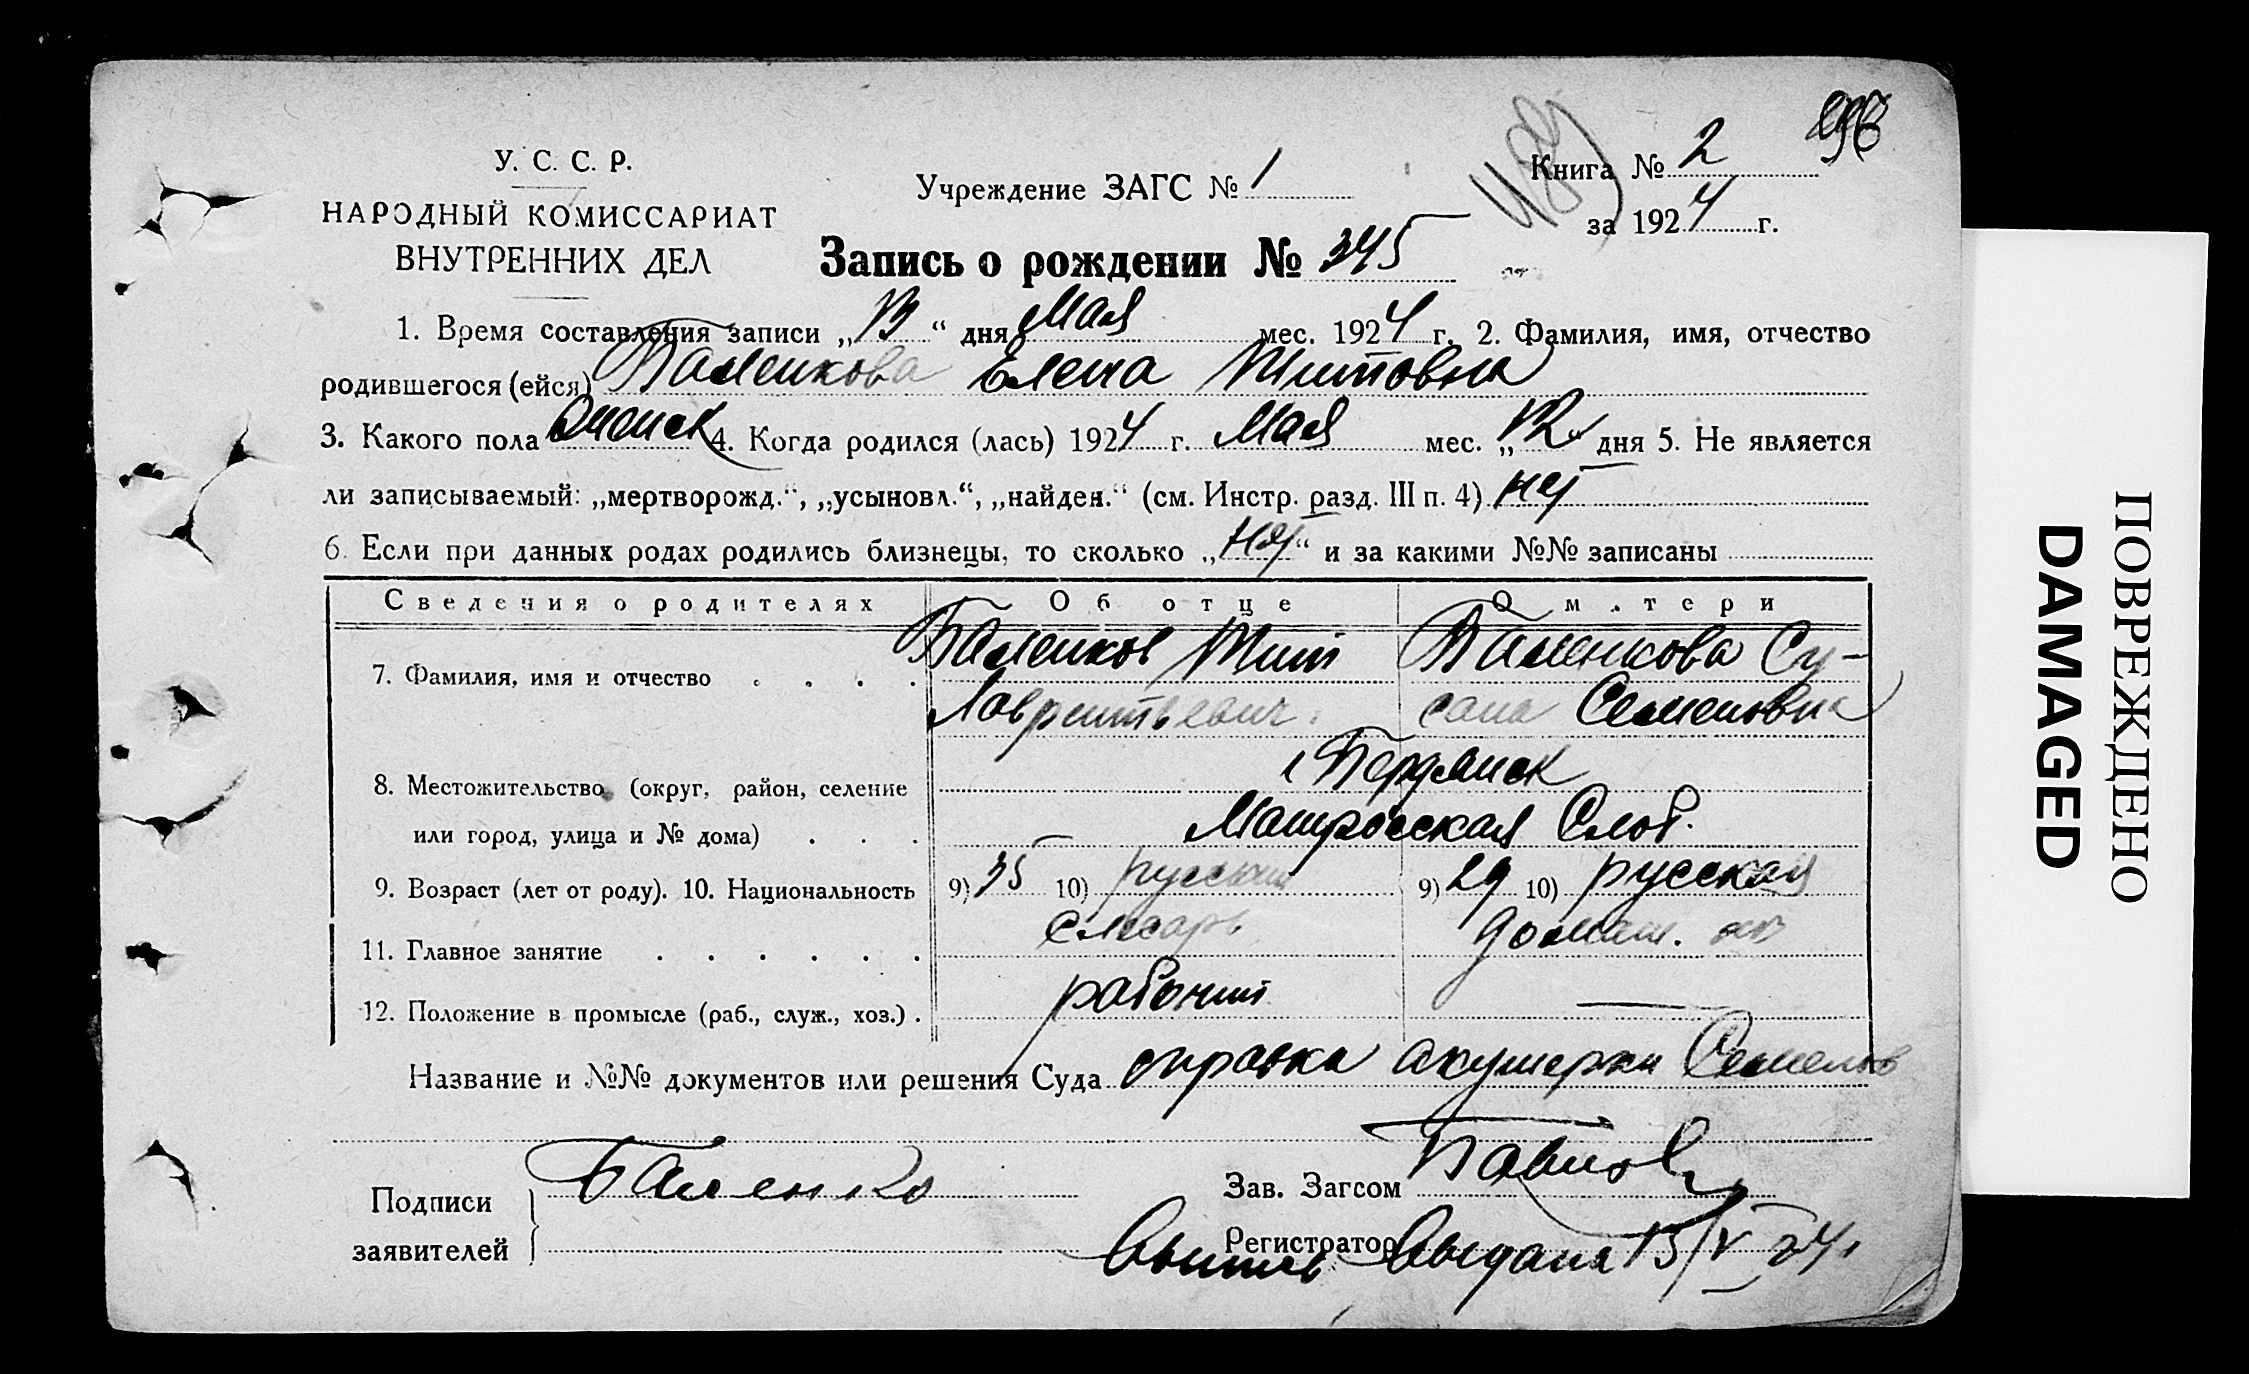 У. С. С. Р.
НАРОДНЫЙ КОМИССАРИАТ
ВНУТРЕННИХ ДЕЛ
Учреждение ЗАГС № 1
Книга № 2
за 1924 г.
Запись о рождении № 345
1. Время составления записи „13“ дня Мая мес. 1924 г. 2. Фамилия, имя, отчество
родившегося (ейся) Баленкова Елена Титовна
3. Какого пола женск 4. Когда родился (лась) 1924 г. Мая мес. „12“ дня 5. Не является
ли записываемый: „мертворожд.“, „усыновл.“, „найден.“ (см. Инстр. разд. III п. 4) нет
6. Если при данных родах родились близнецы, то сколько „нет“ и за какими №№ записаны
Сведения о родителях Об отце О м.тери
7. Фамилия, имя и отчество . . . . Баленков Тит Баленкова Су-
Лаврентьевич. сана Семеновна
8. Местожительство (округ, район, селение г Бердянск
или город, улица и № дома) . . . Матросская Слоб.
9. Возраст (лет от роду). 10. Национальность 9) 35 10) русский 9) 29 10) русская
11. Главное занятие . . . . . . слесарь домаш. хоз
12. Положение в промысле (раб., служ., хоз.) . рабочий —
Название и №№ документов или решения Суда справка акушерки
Подписи
заявителей
Баленко
Зав. Загсом
Регистратор
выдана 13/V 24.
ПОВРЕЖДЕНО
DAMAGED